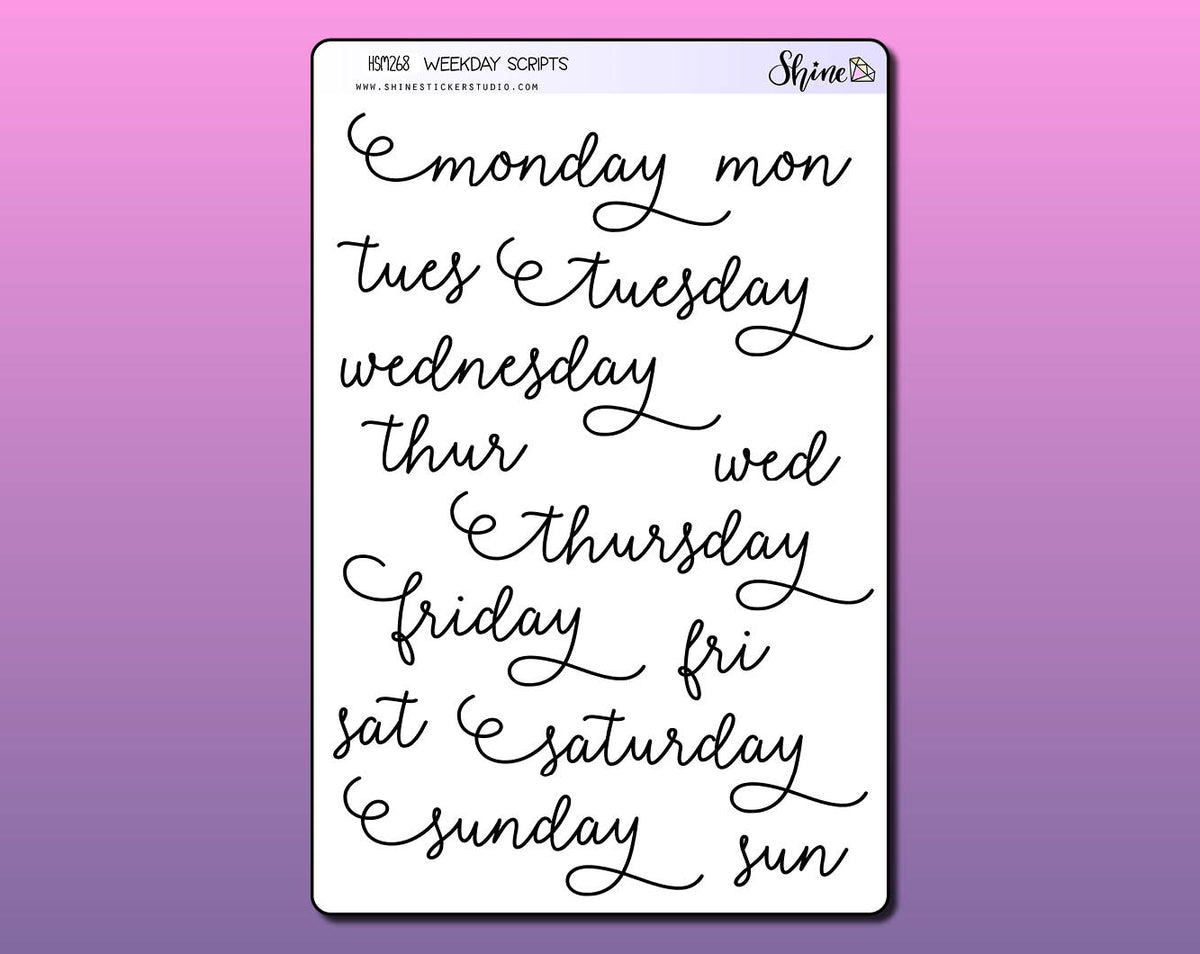 HSM268 WEEKDAY SCRIPTS
WWW.SHINESTICKERSTUDIO.COM
Shine
monday mon
tues tuesday
wednesday
thur wed
thursday
friday fri
sat saturday
sunday sun